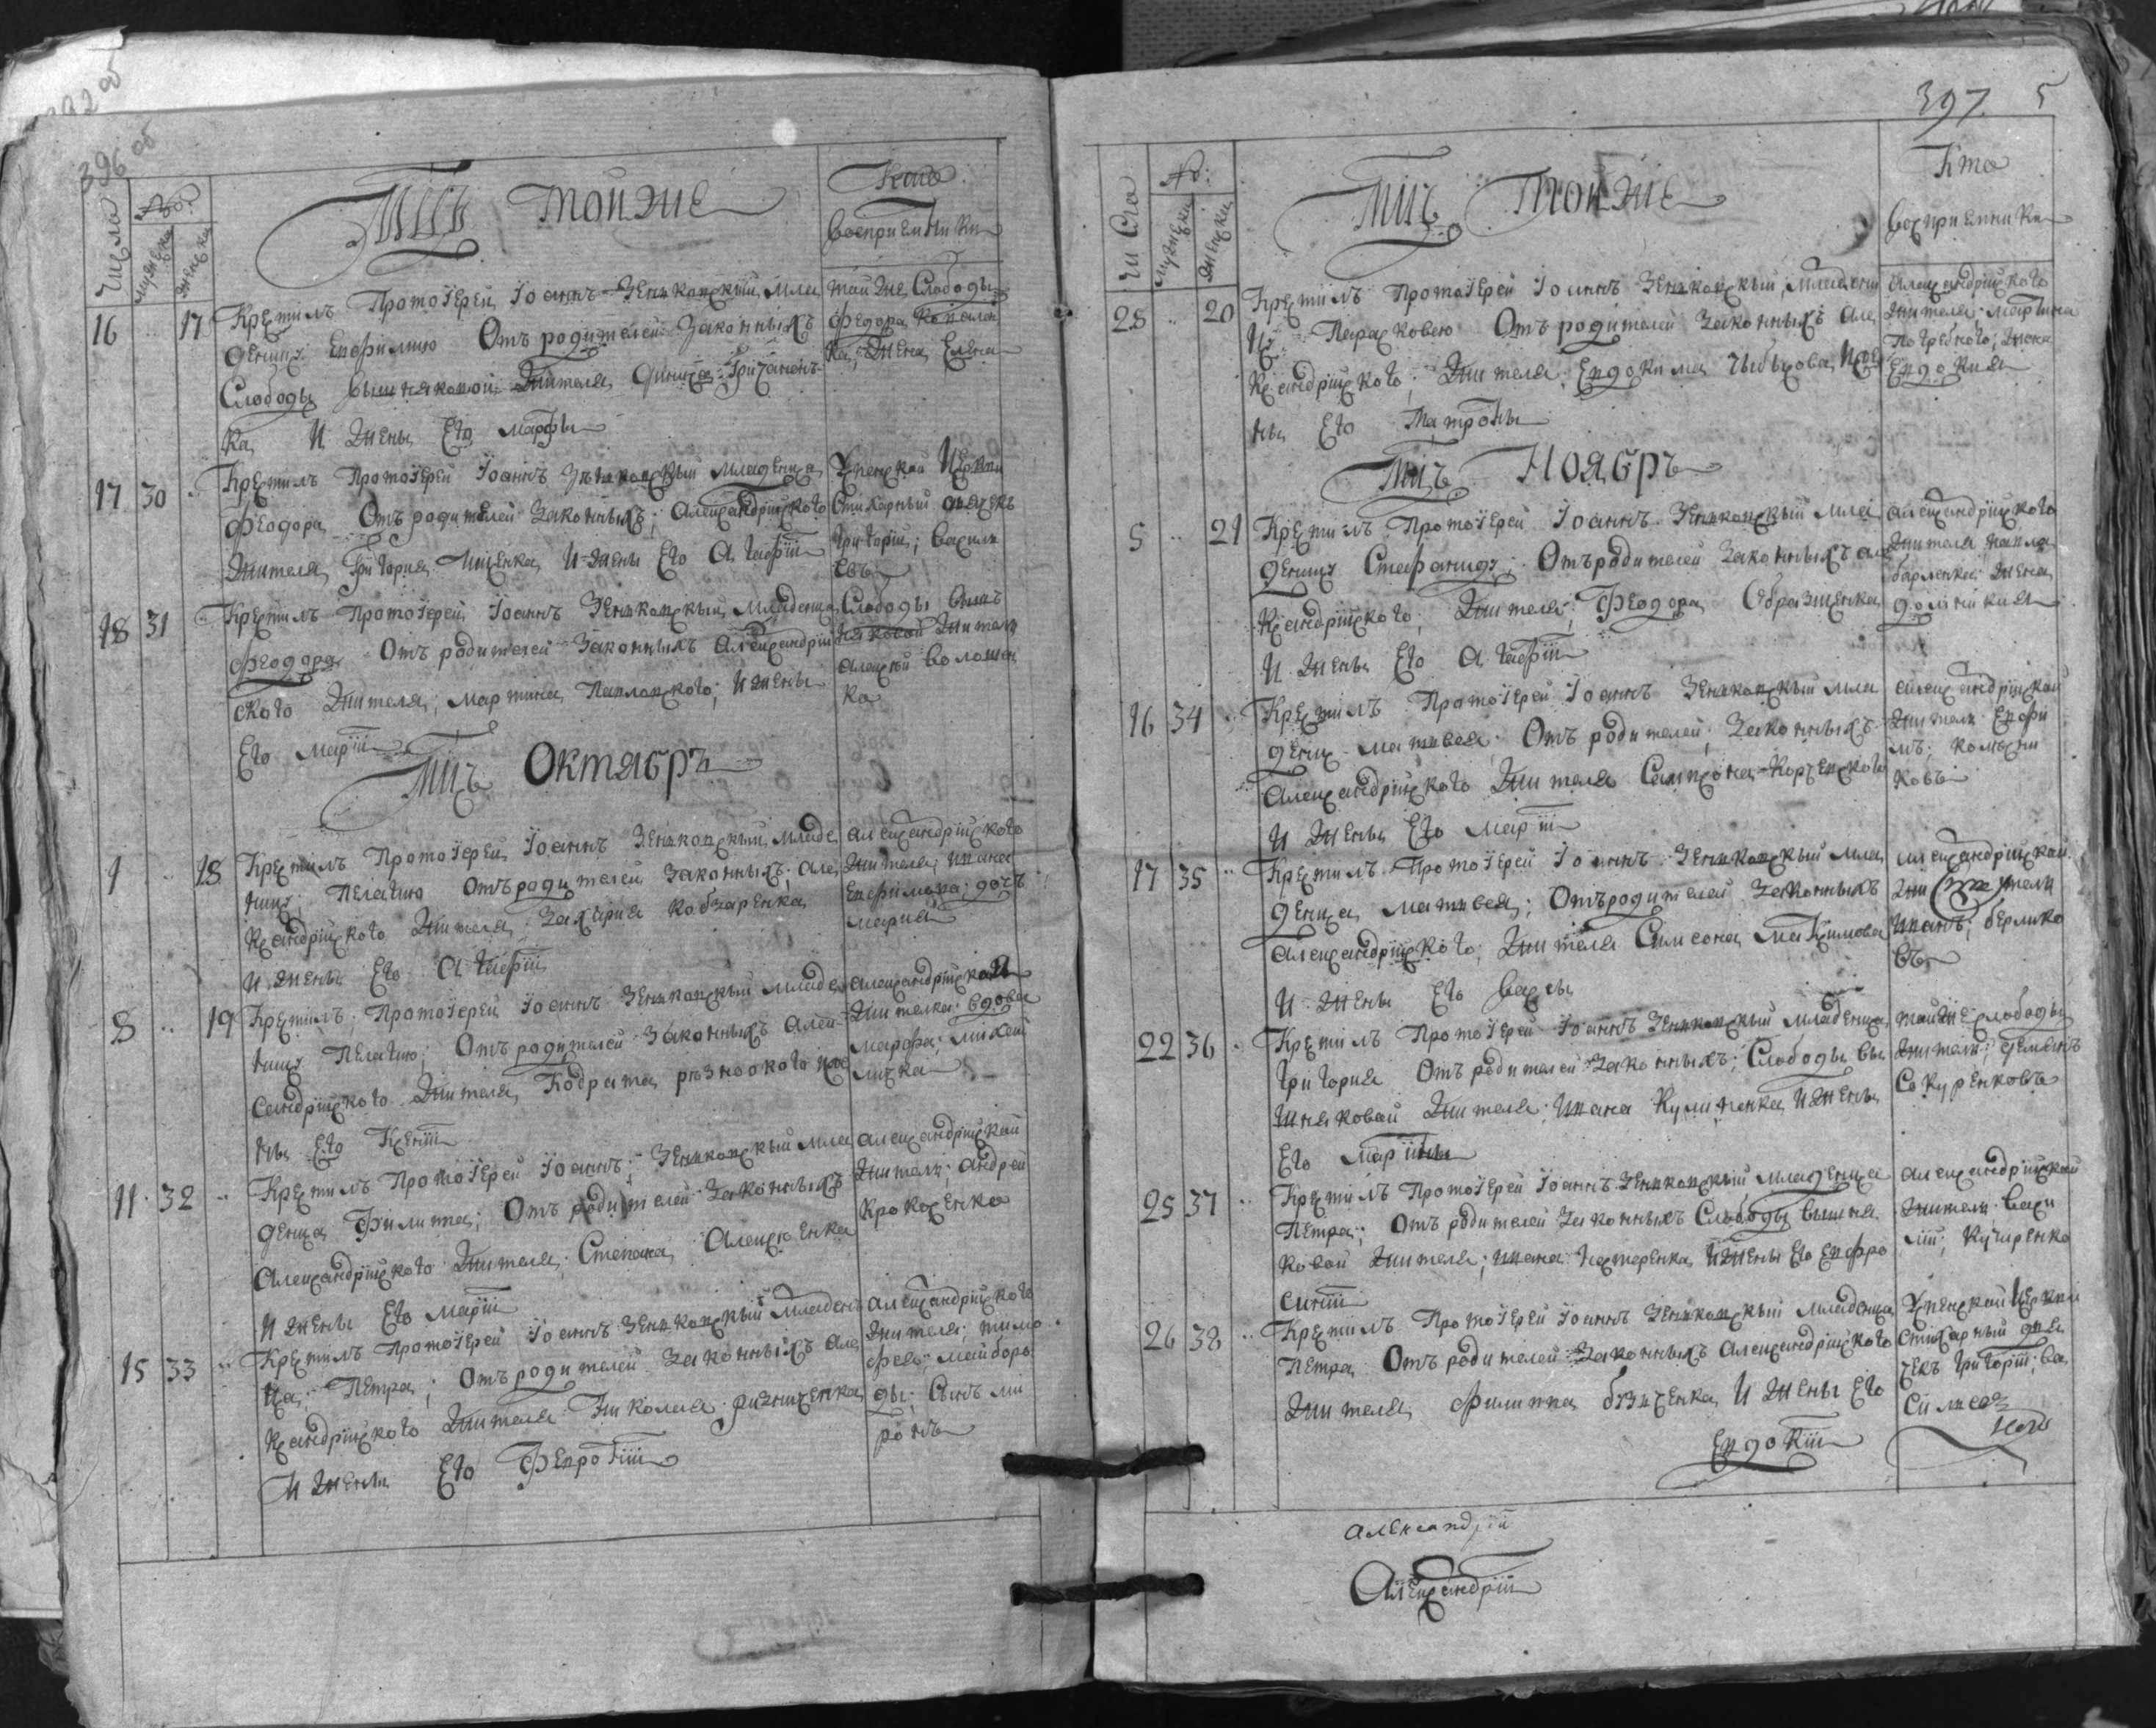 396 об
Число
№
мужеска
женска
Мсцъ тойже
Кто
восприемники
16 17 Крестилъ Протоіерей Іоаннъ Зеньковскый мла
деницу Евфимию Отъ родителей Законныхъ
Слободы Вышняковой Жителя
ка И Жены Его Марфы
тойже Слободы
Федора
ка, Жена Елена
17 30 Крестилъ Протоіерей Іоаннъ Зеньковскый младенца
Феодора Отъ родителей Законныхъ; Александрійского
Жителя Григория Ищенка И жены Его Агафіи
Успенской Церкви
Стихарный дячекъ
Григорій; Василь
евъ
18 31 Крестилъ Протоіерей Іоаннъ Зеньковскый Младенца
Феодора Отъ родителей Законныхъ Александрій
ского Жителя; Мартина Павловского; И жены
Его Маріи
Слободы Выш
няковой Житель
Алексій Волошен
ко
Мсцъ Октябръ
1 18 Крестилъ Протоіерей Іоаннъ Зеньковскый младе
ницу Пелагию Отъ родителей Законныхъ; Але
ксандрійского Жителя Захария Кобзаренка
И жены Его Агафіи
Александрійского
Жителя; Ивана
Ефимова; дочъ
Мария
8 19 Крестилъ; Протоіерей Іоаннъ Зеньковскый Младе
ницу Пелагию; Отъ родителей Законныхъ Алек
сандрійского Жителя, Кодрата Резноокого И же
ны Его Ксеніи
Александрійская
Жителка; вдова
Марфа; Михай
личка
11 32 Крестилъ Протоіерей Іоаннъ; Зеньковскый мла
денца Филиппа; Отъ родителей Законныхъ
Александрійского Жителя; Степана Алексеенка
И жены Его Маріи
Александрійский
Житель; Андрей
Крокосенко
15 33 Крестилъ Протоіерей Іоаннъ Зеньковскый Младен
ца; Петра; Отъ родителей Законныхъ Але
ксандрійского Жителя Николая Ризниченка
И жены Его Февроніи
Александрійского
Жителя; Тимо
фея; Майборо
ды; Сынъ Ми
ронъ
397 5
Число
№:
мужеска
женска
Мсцъ Тойже
Кто
восприемники
28 20 Крестилъ Протоіерей Іоаннъ Зеньковскый, Младени
цу Парасковею Отъ родителей Законныхъ Але
ксандрійского; Жителя; Евдокима Чыбысова, И же
ны Его Матроны
Александрійского
Жителя Мартина
Погребного; жена
Евдокия
Мсцъ Ноябръ
5 21 Крестилъ Протоіерей Іоаннъ Зеньковскый Мла
деницу Стефаниду; Отъ родителей Законныхъ але
ксандрійского; Жителя; Феодора Образценка
И Жены Его Агафіи
Александрійского
Жителя Павла
жена
Домникия
16 34 Крестилъ Протоіерей Іоаннъ Зеньковскый мла
денца Матвея Отъ родителей; Законныхъ
Александрійского Жителя Сампсона Корсевского
И Жены Его Маріи
Александрійский
Житель Евфи
мъ; Колесни
ковъ
17 35 Крестилъ Протоіерей Іоаннъ Зеньковскый мла
денца Матвея; Отъ родителей Законныхъ
Александрійского; Жителя Симеона Максимова
И Жены Его Вассы
Александрійский
Житель
Иванъ; Берлико
въ
22 36 Крестилъ Протоіерей Іоаннъ Зеньковскый младенца
Григория Отъ родителей Законныхъ; Слободы Вы
шняковой Жителя; Ивана Кулиненка И Жены
Его Марины
тойже слободы
Житель; Демянъ
Сокуренковъ
25 37 Крестилъ Протоіерей Іоаннъ Зеньковскый младенца
Петра; Отъ родителей Законныхъ Слободы Вышня
ковой Жителя; Ивана Нестеренка, И Жены Его Евфро
синіи
Александрійский
Житель Васи
лій; Кучеренко
26 38 Крестилъ Протоіерей Іоаннъ Зеньковскый Младенца
Петра Отъ родителей Законныхъ Александрійского
Жителя Филиппа И Жены Его
Евдокіи
Успенской Церкви
Стихарный дья
чекъ Григорій; Ва
сильевъ
Александрій
Александрій